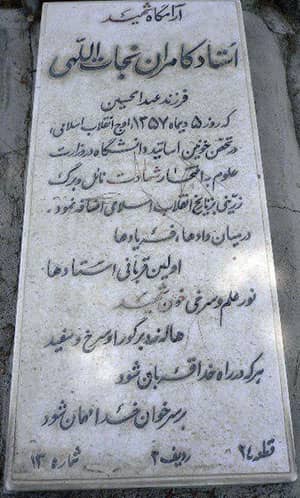 آرامگاه شهید
استاد کامران نجات اللهی
فرزند عبدالحسین
که روز ۵ دیماه ۱۳۵۷ اوج انقلاب اسلامی،
در تحصن خونین اساتید دانشگاه در وزارت
علوم به افتخار شهادت نائل و برگ
زرینی بر تاریخ انقلاب اسلامی اضافه نمود.
در میان دادها، فریادها
اولین قربانی استادها
نور علم و سرخی خون شهید
هاله زد بر گور او سرخ و سفید
هر که در راه خدا قربان شود
بر سر خوان خدا مهمان شود
قطعه ۲۴ ردیف ۳ شماره ۱۳